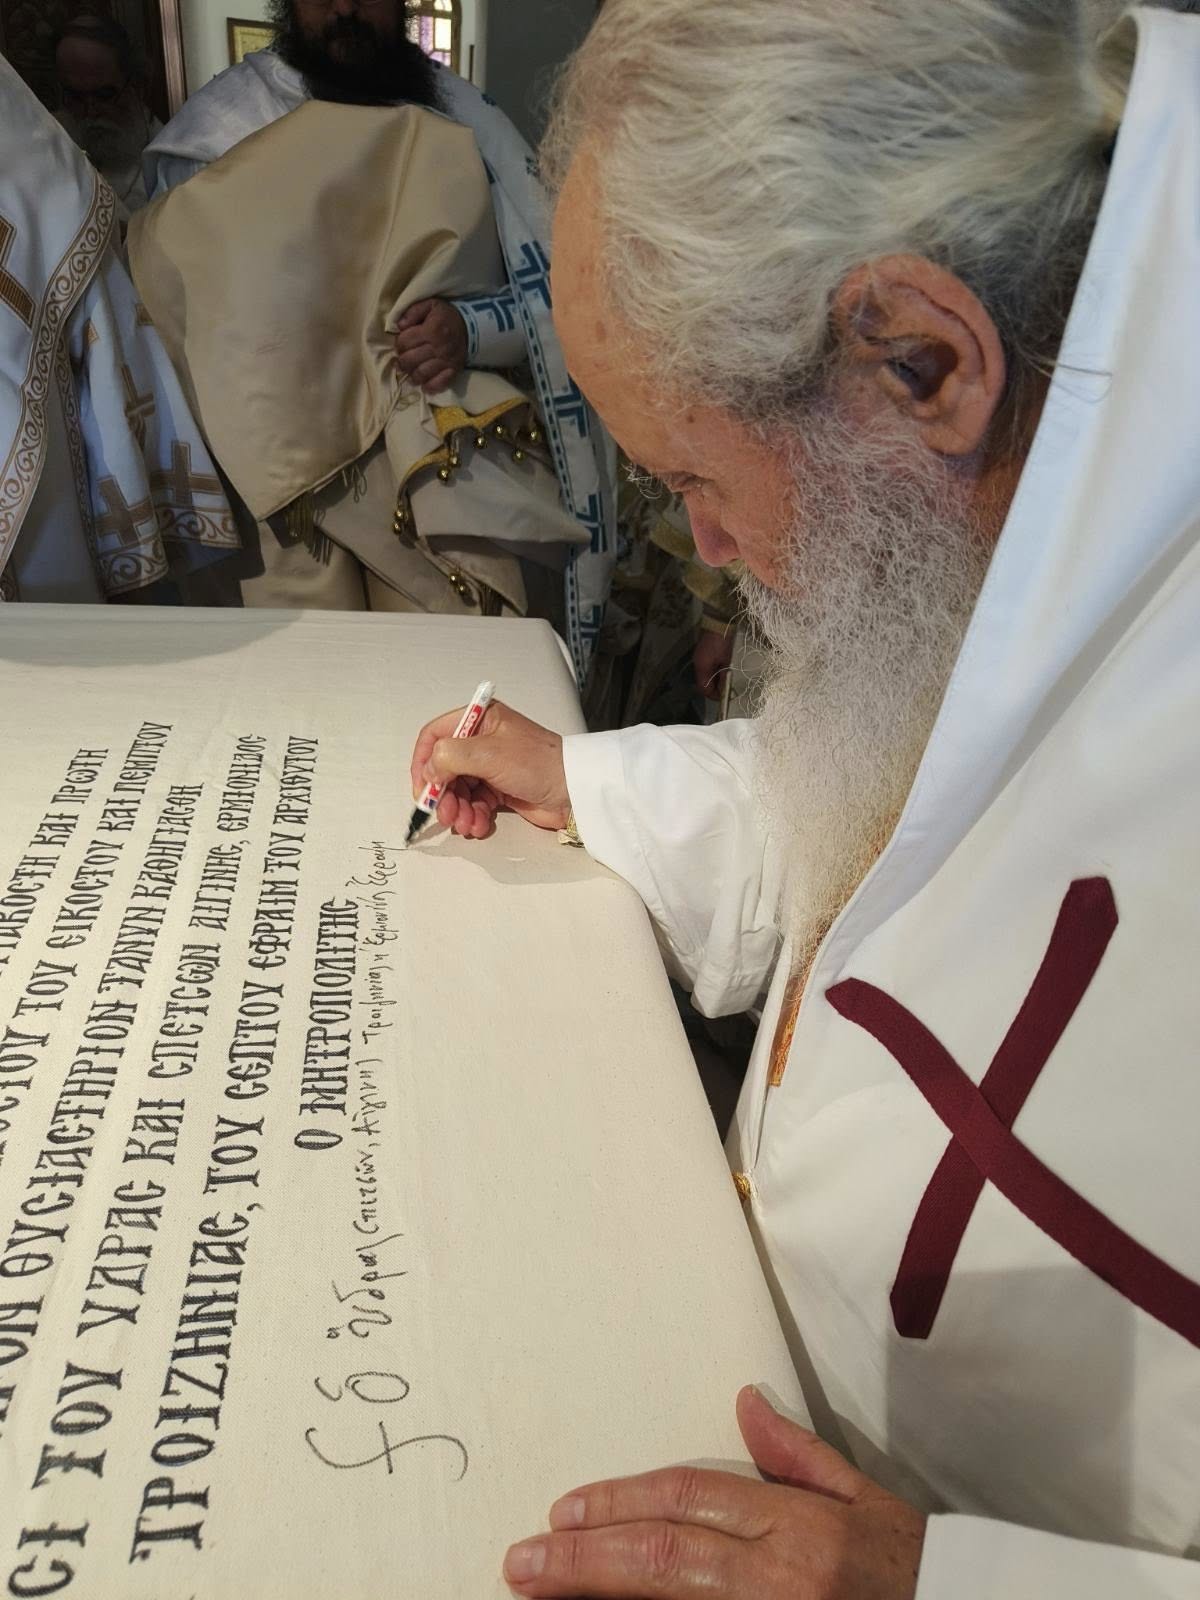 ΚΟCΤΗ ΚΑΙ ΠΡΩΤΗ
ΤΟΥ ΕΙΚΟCΤΟΥ ΚΑΙ ΠΕΜΠΤΟΥ
ΘΥCΙΑCΤΗΡΙΟΝ ΤΑΝΥΝ ΚΑΘΗΓΙΑCΘΗ
CΙ ΤΟΥ ΥΔΡΑC ΚΑΙ CΠΕΤCΩΝ ΑΙΓΙΝΗC, ΕΡΜΙΟΝΙΔΟC
ΤΡΟΙΖΗΝΙΑC, ΤΟΥ CΕΠΤΟΥ ΕΦΡΑΙΜ ΤΟΥ ΑΡΧΙΘΥΤΟΥ
Ο ΜΗΤΡΟΠΟΛΙΤΗC
ὁ Ὕδρας Σπετσῶν, Αἰγίνης Τροιζηνίας Ἑρμιονίδος Ἐφραίμ
edding